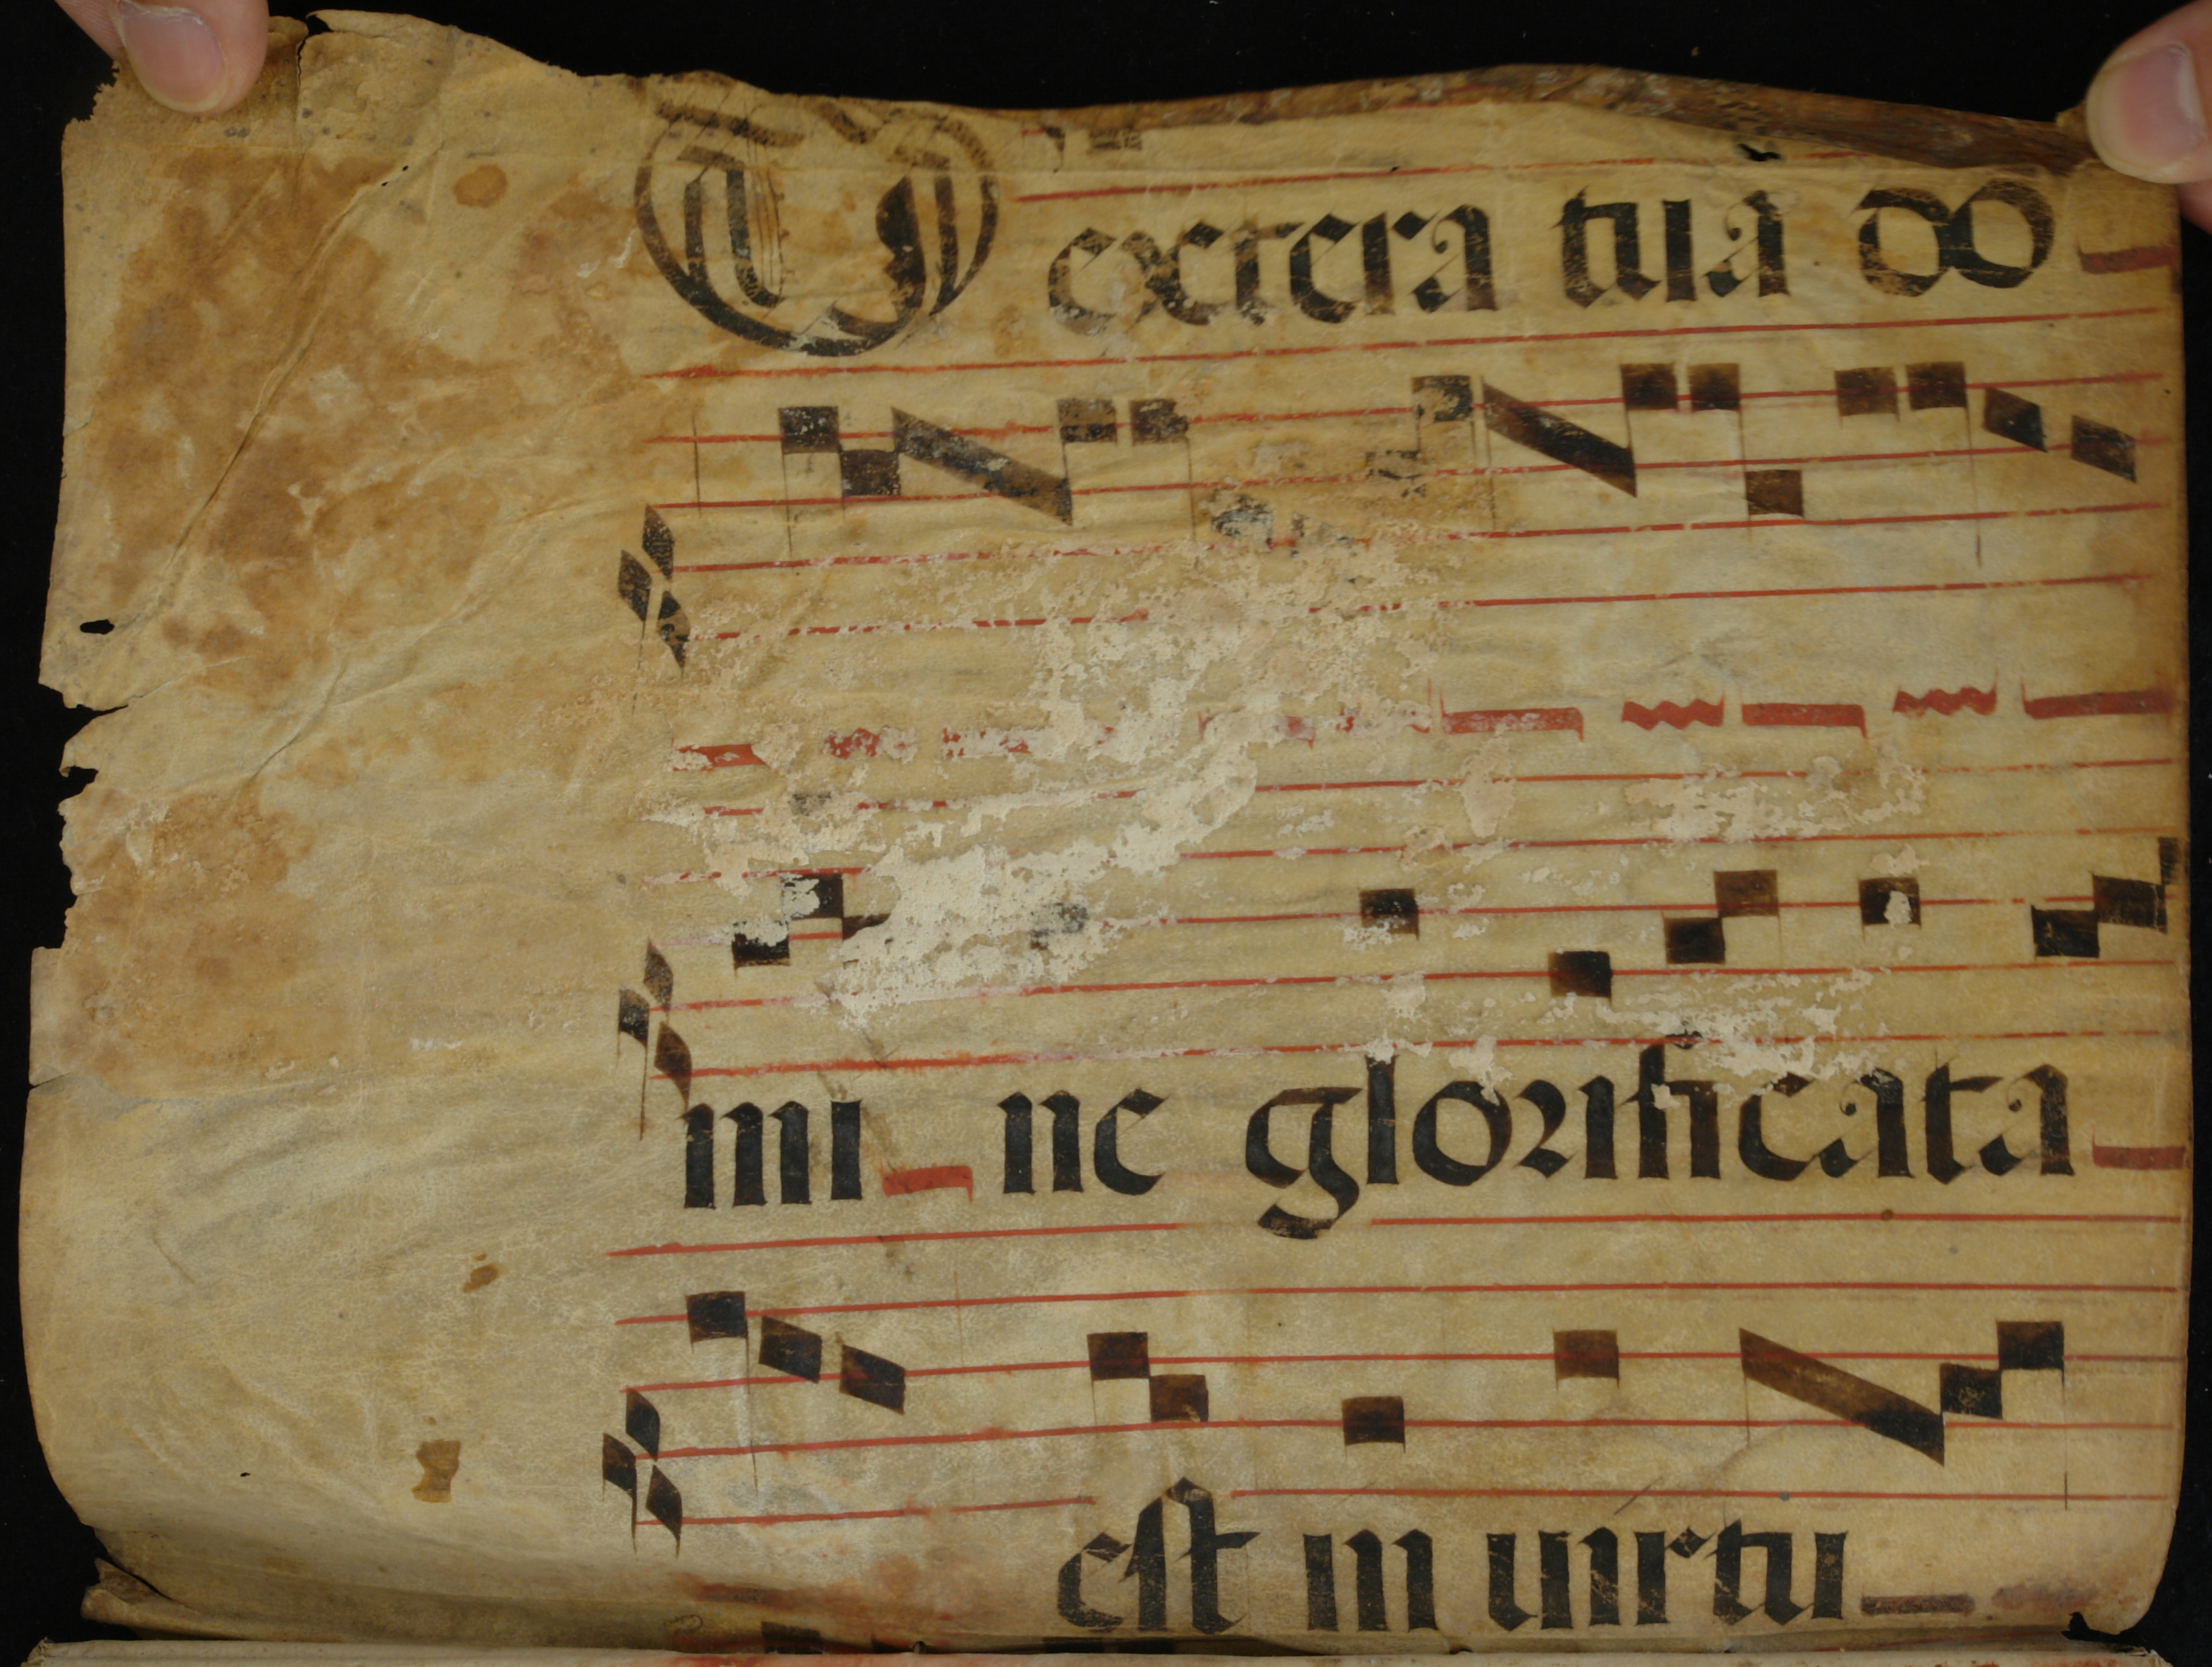 Dextera tua do
mi ne glorificata
est in uirtu